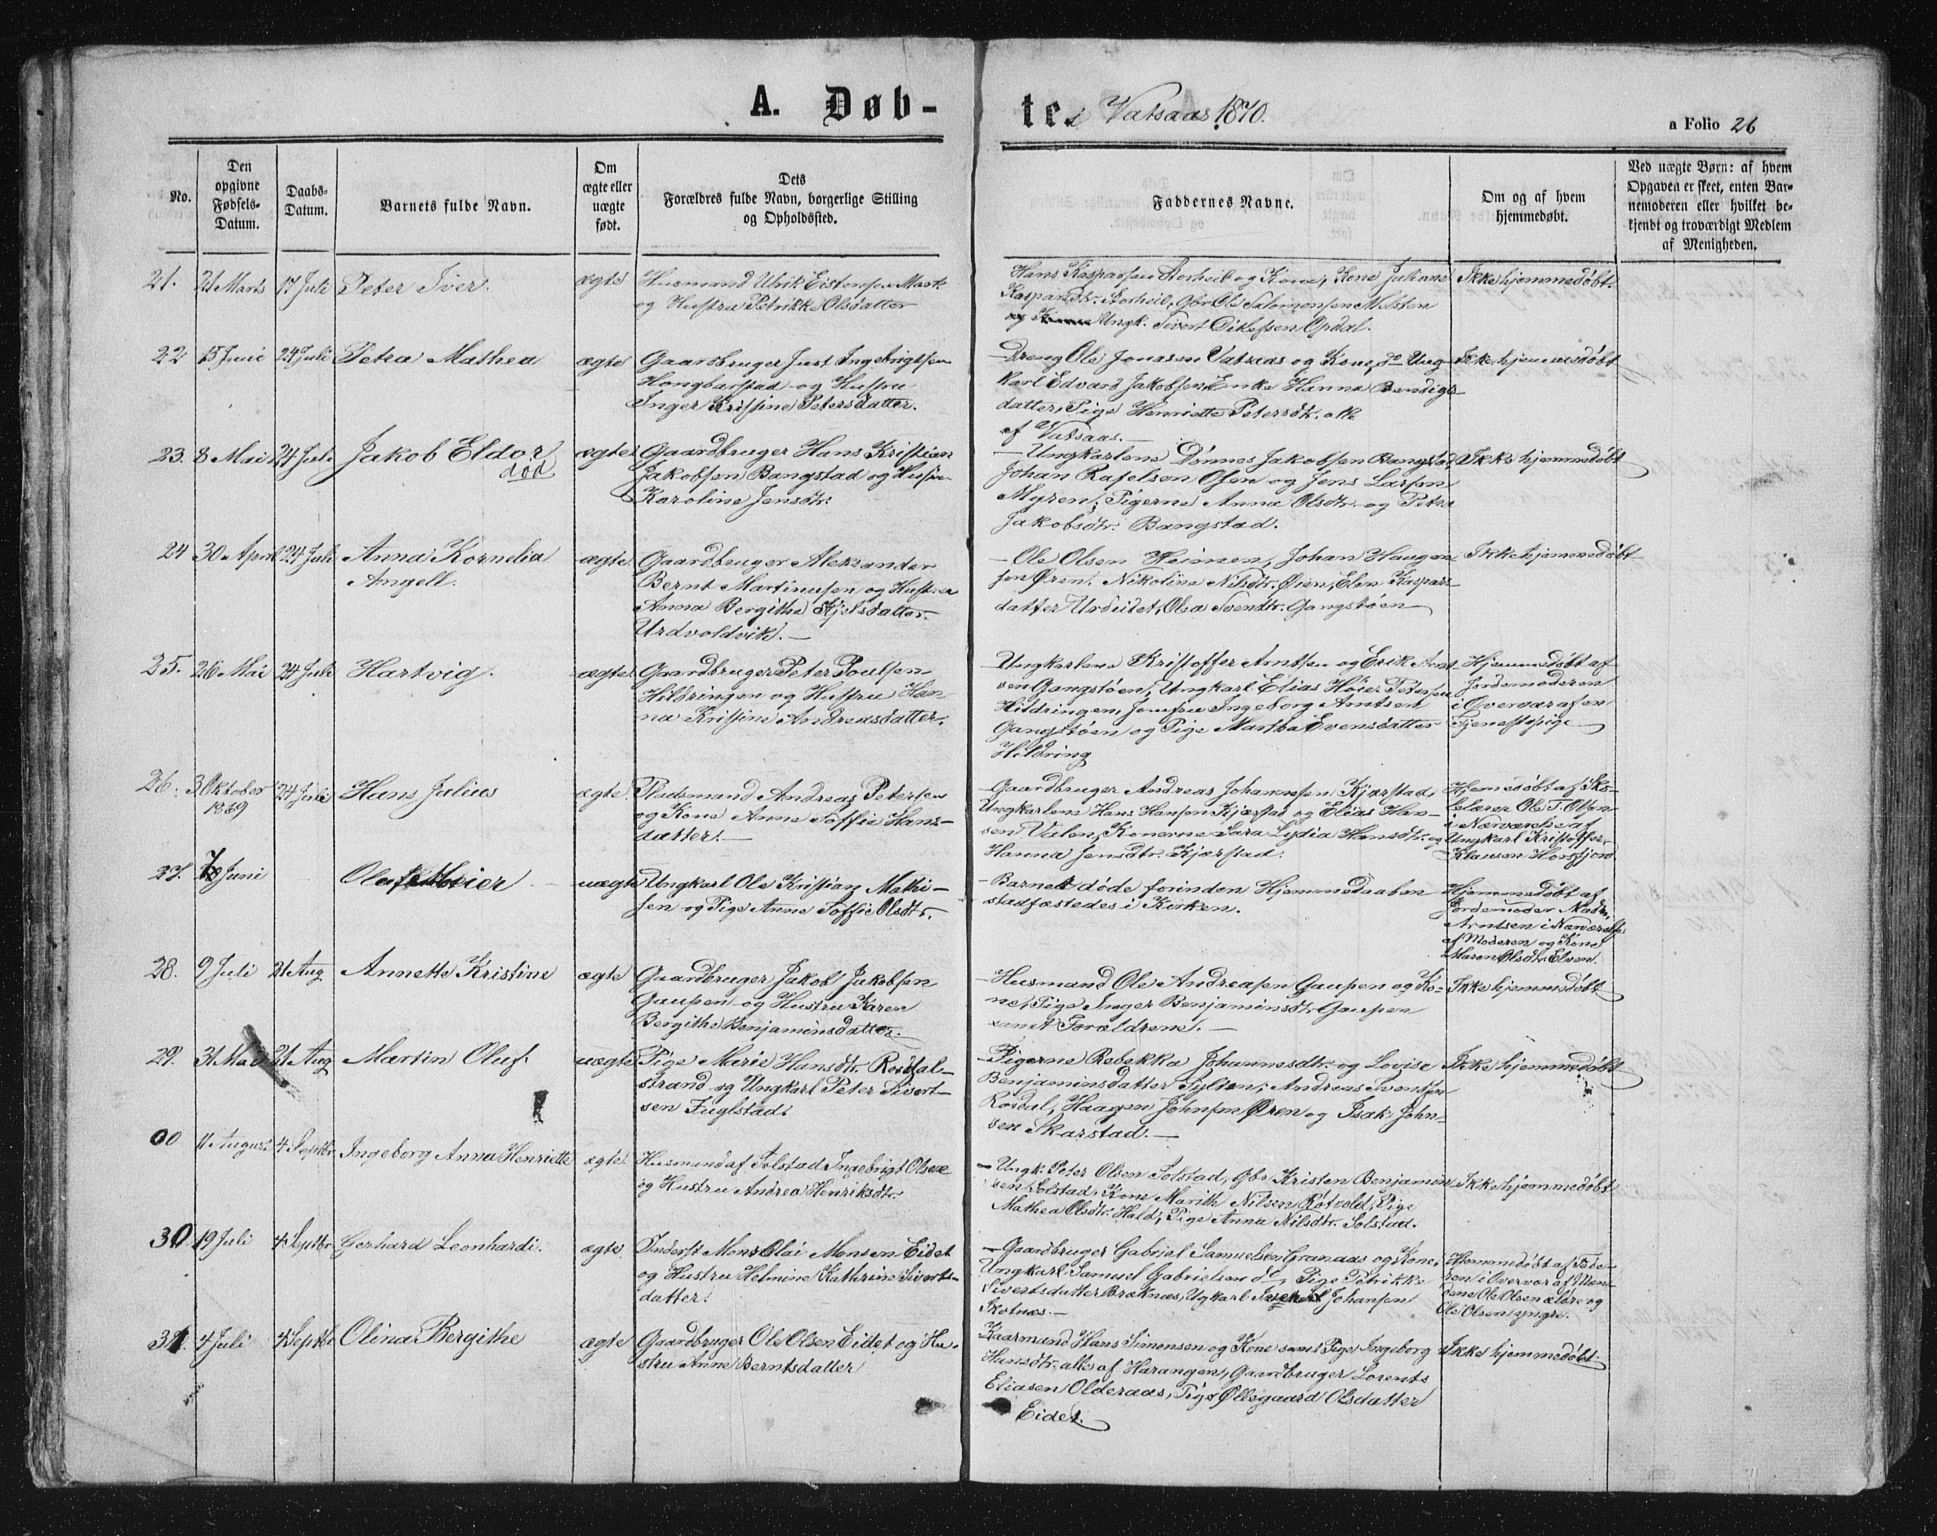 A. Døb-
te i Vatsaas 1870.
a Folio 26
No.
Den
opgivne
Fødsels-
Datum.
Daabs-
Datum.
Barnets fulde Navn.
Om
ægte eller
uægte
født.
Dets
Forældres fulde Navn, borgerlige Stilling
og Opholdssted.
Faddernes Navne.
Om og af hvem
hjemmedøbt.
Ved uægte Børn: af hvem
Opgaven er skeet, enten Bar-
nemoderen eller hvilket be-
kjendt og troværdigt Medlem
af Menigheden.
21. 21 Marts 17 Juli Peter Iver. ægte
Husmand Ulrik Eistensen Mark
og Hustru Petrikke Olsdatter
Hans Kasparsen og Kone, Kone Juliane
Kaspardtr. Gbr Ole Salomonsen
og Ungk. Sivert Opdal.
Ikke hjemmedøbt.
22 15 Juni 24 Juli Petra Mathea ægte
Gaardbruger Just Ingebrigtsen
Hongbarstad og Hustru
Inger Kristine Petersdatter.
Dreng Ole Jonasen Vatsaas og Kone, do Ung-
karl Edvard Jakobsen Enke Hanna Bendigs-
datter, Pige Henriette Petersdtr. alle
af Vatsaas.
Ikke hjemmedøbt
23. 8 Mai 24 Juli Jakob Eldor
død.
ægte
Gaardbruger Hans Kristian
Jakobsen Bangstad og Hustru
Karoline Jensdtr.
Ungkarlene Dønnes Jakobsen Bangstad
Johan Rafelsen Osen og Jens Larsen
Myren, Pigerne Anna Olsdtr. og Petra
Jakobsdtr. Bangstad.
Ikke hjemmedøbt
24 30 April 24 Juli Anna Kornelia
Angell.
ægte
Gaardbruger Aleksander
Bernt Martinusen og Hustru
Anna Bergithe Kjelsdatter
Urdvoldvik.
Ole Olsen Heimen, Johan Haagen-
sen Øren, Nikoline Nilsdtr. Øien, Elen Kaspars-
datter Urdeidet, Olsa Svendtr. Gangstøen
Ikke hjemmedøbt
25. 26 Mai 24 Juli Hartvig. ægte
Gaardbruger Peter Poulsen
Hildringen og Hustru Han-
na Kristine Andreasdatter.
Ungkarlene Kristoffer Arntsen og Erik Arnt-
sen Gangstøen, Ungkarl Elias Høier Petersen
Hildringen, Jomfru Ingeborg Arntsen
Gangstøen og Pige Martha Evensdatter
Hildring
Hjemmedøbt af
Jordemoderen
i Overvær af en
Tjenestepige
26. 3 Oktober
1869
24 Juli Hans Julius ægte
Pladsmand Andreas Petersen
og Kone Anne Soffie Hans-
datter.
Gaardbruger Andreas Johannesen Kjærstad,
Ungkarlene Hans Hansen Kjærstad og Elias Han-
sen Valen, Konerne Sara Lydia Hansdtr. og
Hanna Jensdtr. Kjærstad.
Hjemmedøbt af Sko-
lelærer Ole T. Olsen
i Nærværelse af
Ungkarl Kristoffer
Klausen Horsfjord
27. 7 Juni Oluf Meier uægte
Ungkarl Ole Kristian Mathi-
sen og Pige Anne Soffie Olsdtr.
Barnet døde forinden Hjemmedaaben
stadfæstedes i Kirken.
Hjemmedøbt af
Jordemoder
Arntsen i Nærværelse
af Moderen og Kone
Maren Olsdtr. Elven.
28. 9 Juli 21 Aug Annette Kristine ægte
Gaardbruger Jakob Jakobsen
Gaupen og Hustru Karen
Bergithe Benjaminsdatter
Husmand Ole Andreasen Gaupen og Ko-
ne, Pige Inger Benjaminsdtr. Gaupen
samt Forældrene.
Ikke hjemmedøbt
29. 31 Mai 21 Aug Martin Oluf. uægte
Pige Marie Hansdtr. Rosdal-
strand og Ungkarl Peter Sivert-
sen Fuglstad.
Pigerne Rebekka Johannesdtr. og Lovise
Benjaminsdatter Andreas Svensen
Rosdal, Haagen Johnsen Øren og Isak John-
sen Skarstad.
Ikke hjemmedøbt
00 11 August 4 Septbr Ingeborg Anna Henriette ægte
Husmand af Solstad Ingebrigt Olsen
og Hustru Andrea Henriksdtr.
Ungk. Peter Olsen Solstad, Gbr Kristen Benjamin-
sen Solstad, Kone Marith Nilsen Røtvold, Pige
Mathea Olsdtr. Hald, Pige Anna Nilsdtr. Solstad.
Ikke hjemmedøbt
30 19 Juli 4 Septbr Gerhard Leonhardi. ægte
Inderst Mons Olai Monsen Eidet
og Hustru Helmine Kathrine Siverts-
datter.
Gaardbruger Gabriel Samuelsen Granaas og Kone,
Ungkarl Samuel Gabrielsen do, Pige Petrikke
Sivertsdatter Bræknæs, Ungkarl Johansen
Skotnæs.
Hjemmedøbt af Fade-
ren i Overvær af Mæn-
dene Ole Olsen ældre og
Ole Olsen yngre.
31. 4 Juli 4 Septbr Olina Bergithe ægte
Gaardbruger Ole Olsen Eidet og Hu-
stru Anne Berntsdatter
Kaarmand Hans Simonsen og Kone samt Pige Ingeborg
Hansdtr. alle af Harangen, Gaardbruger Lorents
Eliasen Olderaas, Pige Ollegaard Olsdatter
Eidet.
Ikke hjemmedøbt